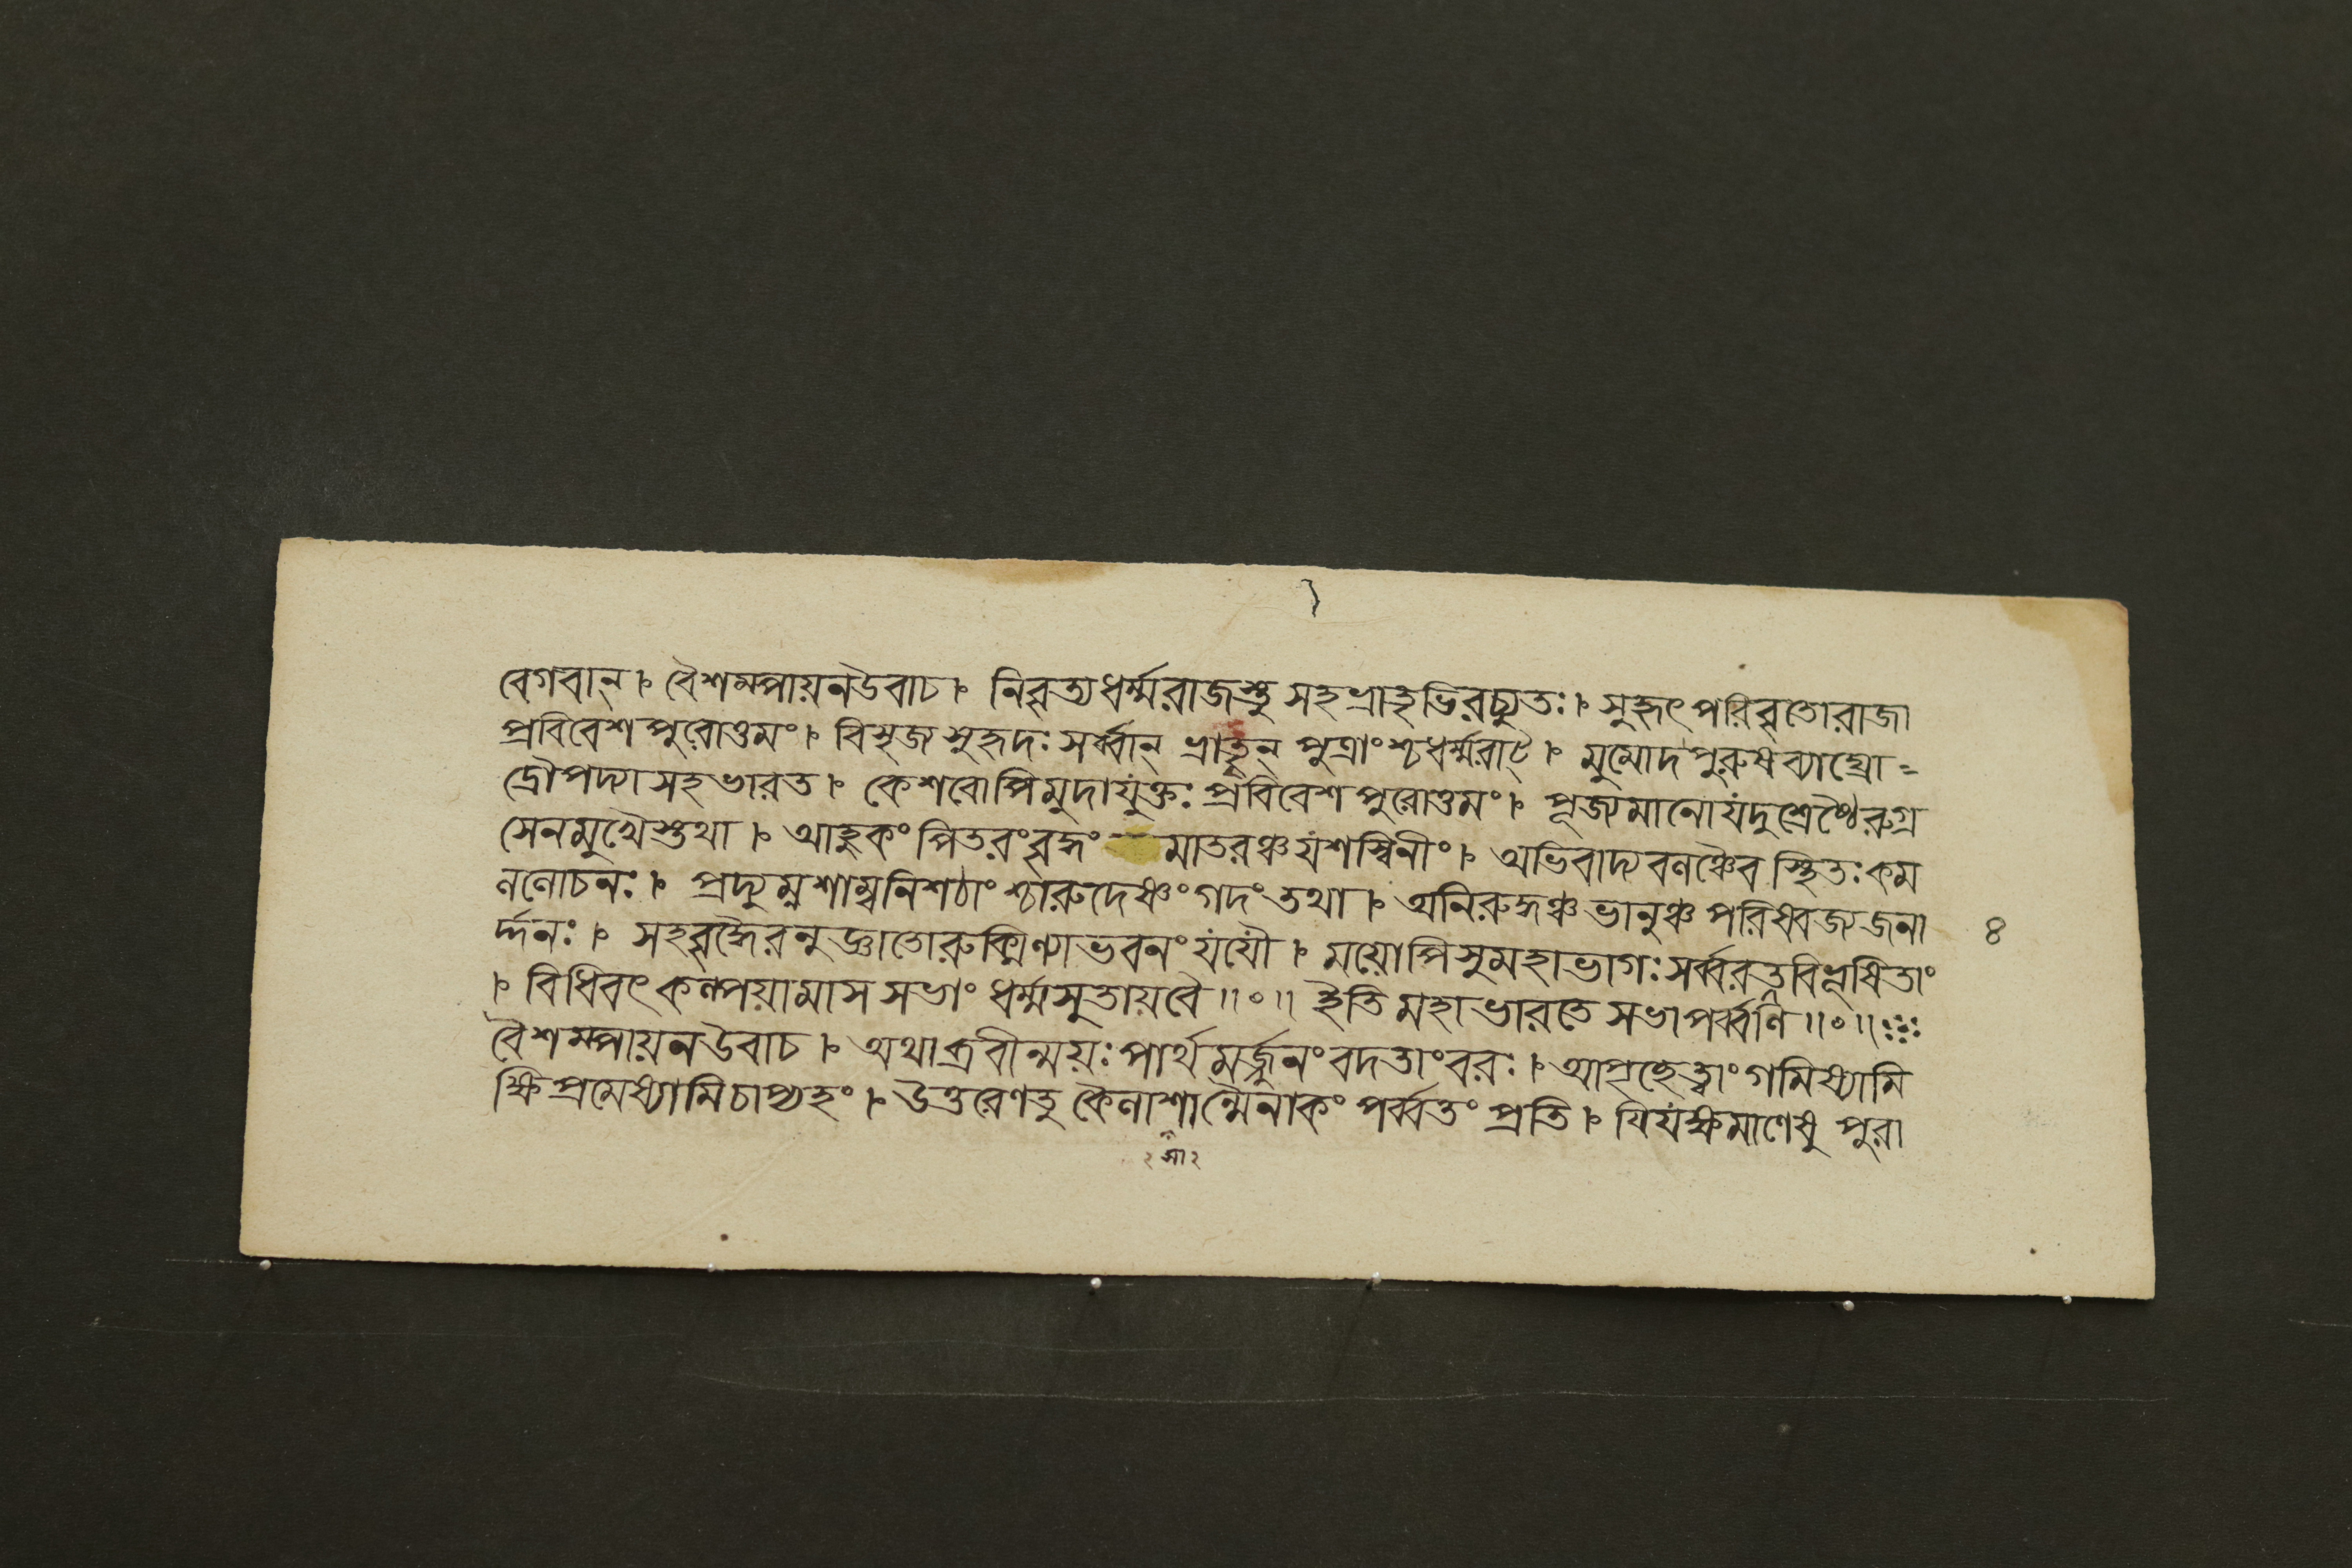 বেগবান্। বৈশম্পায়নউবাচ। নিবৃত্যধর্ম্মরাজস্তু সহভ্রাতৃভিরচ্যুতঃ। সুহৃৎপরিবৃতোরাজা
প্রবিবেশপুরোত্তমং। বিসৃজ্য সুহৃদঃ সর্ব্বান্ ভ্রাতৄন্ পুত্রাংশ্চধর্ম্মরাট্। মুমোদপুরুষব্যাঘ্রো=
দ্রৌপদ্যাসহভারত। কেশবোপিমুদাযুক্তঃ প্রবিবেশপুরোত্তমং। পূজ্যমানোযদুশ্রেষ্ঠৈরুগ্র
সেনমুখৈস্তথা। আহুকং পিতরংবৃদ্ধং মাতরঞ্চযশস্বিনীং। অভিবাদ্যবলঞ্চৈব স্থিতঃকম
ললোচনঃ। প্রদ্যুম্নশাম্বনিশঠাংশ্চারুদেষ্ণংগদংতথা। অনিরুদ্ধঞ্চভানুঞ্চপরিষ্বজ্যজনা
৪
র্দ্দনঃ। সহবৃদ্ধৈরনুজ্ঞাতোরুক্মিণ্যাভবনংযযৌ। ময়োপিসুমহাভাগঃসর্ব্বরত্নবিভূষিতাং
। বিধিবৎকল্পয়ামাসসভাং ধর্ম্মসুতায়বৈ॥০॥ ইতি মহাভারতে সভাপর্ব্বণি॥০॥
বৈশম্পায়নউবাচ। অথাব্রবীন্ময়ঃপার্থমর্জ্জুনংবদতাংবরঃ। আপৃচ্ছেত্বাংগমিষ্যামি
ক্ষিপ্রমেষ্যামিচাপ্যহং। উত্তরেণতু কৈলাশান্মৈনাকং পর্ব্বতং প্রতি। যিযক্ষমাণেষু পুরা
২সা২